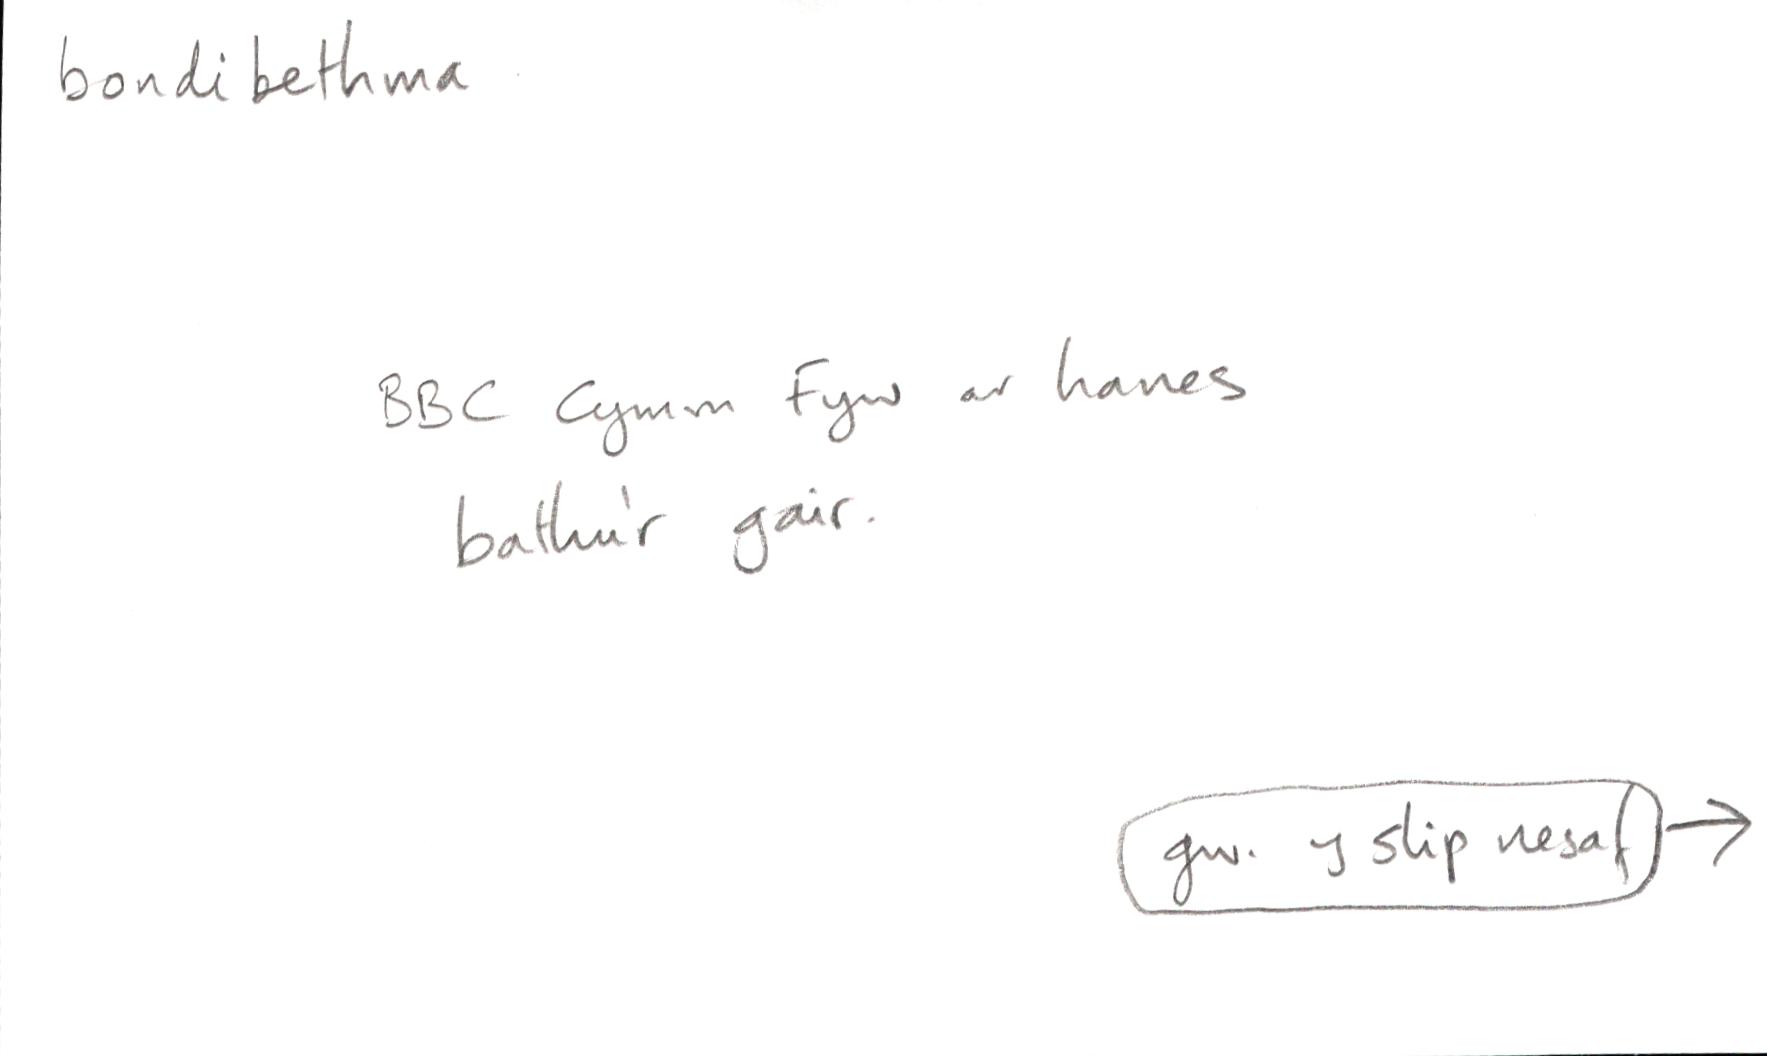 bondibethma
BBC Cymru Fyw ar hanes
bathu'r gair.
gw. y slip nesaf →